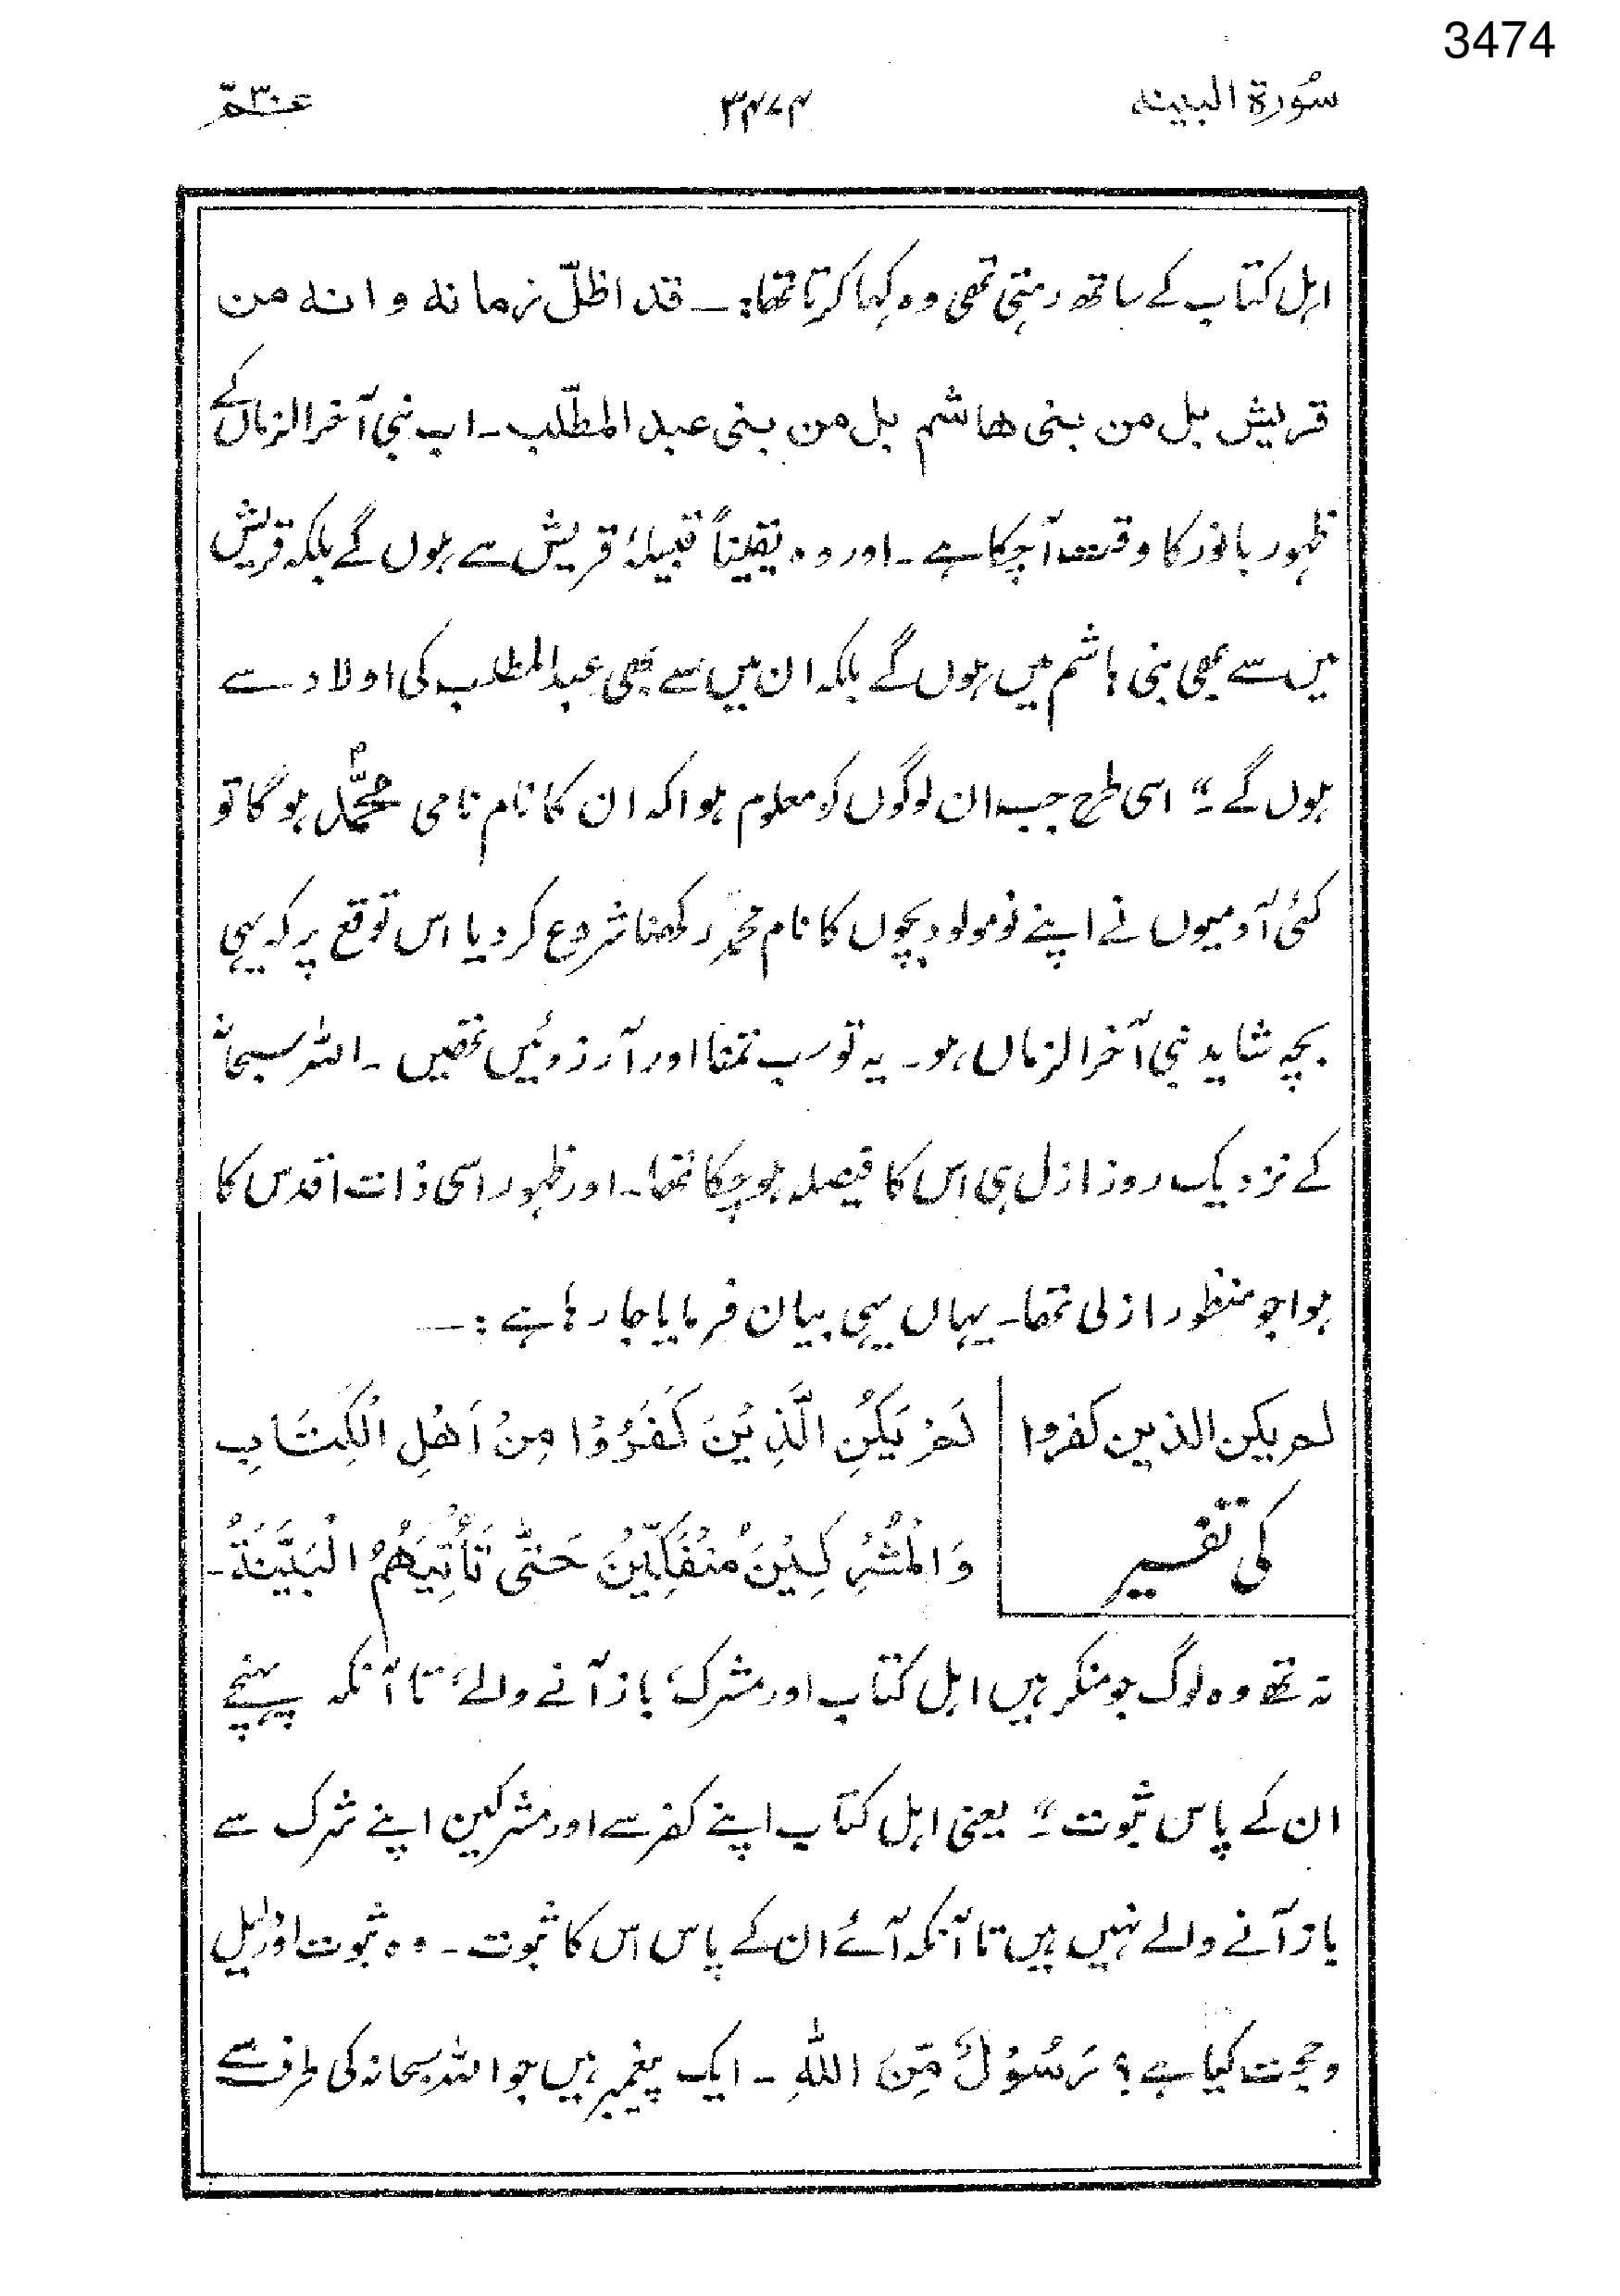 3474
سُورۃ البینہ ۳۴۷۴ عـــمّ ۳۰
اہل کتاب کے ساتھ رہتی تھی وہ کہا کرتا تھا:۔ قد اظلّ زمانہ وانہ من
قریش بل من بنی ھاشم بل من بنی عبد المطّلب۔ اب نبی آخرالزماں کے
ظہور بانور کا وقت آچکا ہے۔ اور وہ یقیناً قبیلۂ قریش سے ہوں گے بلکہ قریش
میں سے بھی بنی ہاشم میں ہوں گے بلکہ ان میں سے بھی عبدالمطلب کی اولاد سے
ہوں گے۔" اسی طرح جب ان لوگوں کو معلوم ہوا کہ ان کا نام نامی محمّدؐ ہو گا تو
کئی آدمیوں نے اپنے نومولود بچّوں کا نام محمدؐ رکھنا شروع کر دیا اس توقع پر کہ یہی
بچہ شاید نبی آخر الزماں ہو۔ یہ تو سب تمنا اور آرزوئیں تھیں۔ اللہ سبحانہٗ
کے نزدیک روز ازل ہی اس کا فیصلہ ہو چکا تھا۔ اور ظہور اسی ذات اقدس کا
ہوا جو منظور ازلی تھا۔ یہاں یہی بیان فرمایا جا رہا ہے:۔
لم یکن الذین کفروا
کی تفسیر
لَمْ یَکُنِ الَّذِیْنَ کَفَرُوْا مِنْ اَھْلِ الْکِتَابِ
وَ الْمُشْرِکِیْنَ مُنْفَکِّیْنَ حَتّٰی تَأْتِیَھُمُ الْبَیِّنَۃُ۔
نہ تھے وہ لوگ جو منکر ہیں اہل کتاب اور مشرک، باز آنے والے، تا آنکہ پہنچے
ان کے پاس ثبوت۔" یعنی اہل کتاب اپنے کفر سے اور مشرکین اپنے شرک سے
باز آنے والے نہیں ہیں تا آنکہ آئے ان کے پاس اس کا ثبوت۔ وہ ثبوت اور دلیل
و حجت کیا ہے؟ رَسُوْلٌ مِّنَ اللّٰهِ۔ ایک پیغمبر ہیں جو اللہ سبحانہ کی طرف سے